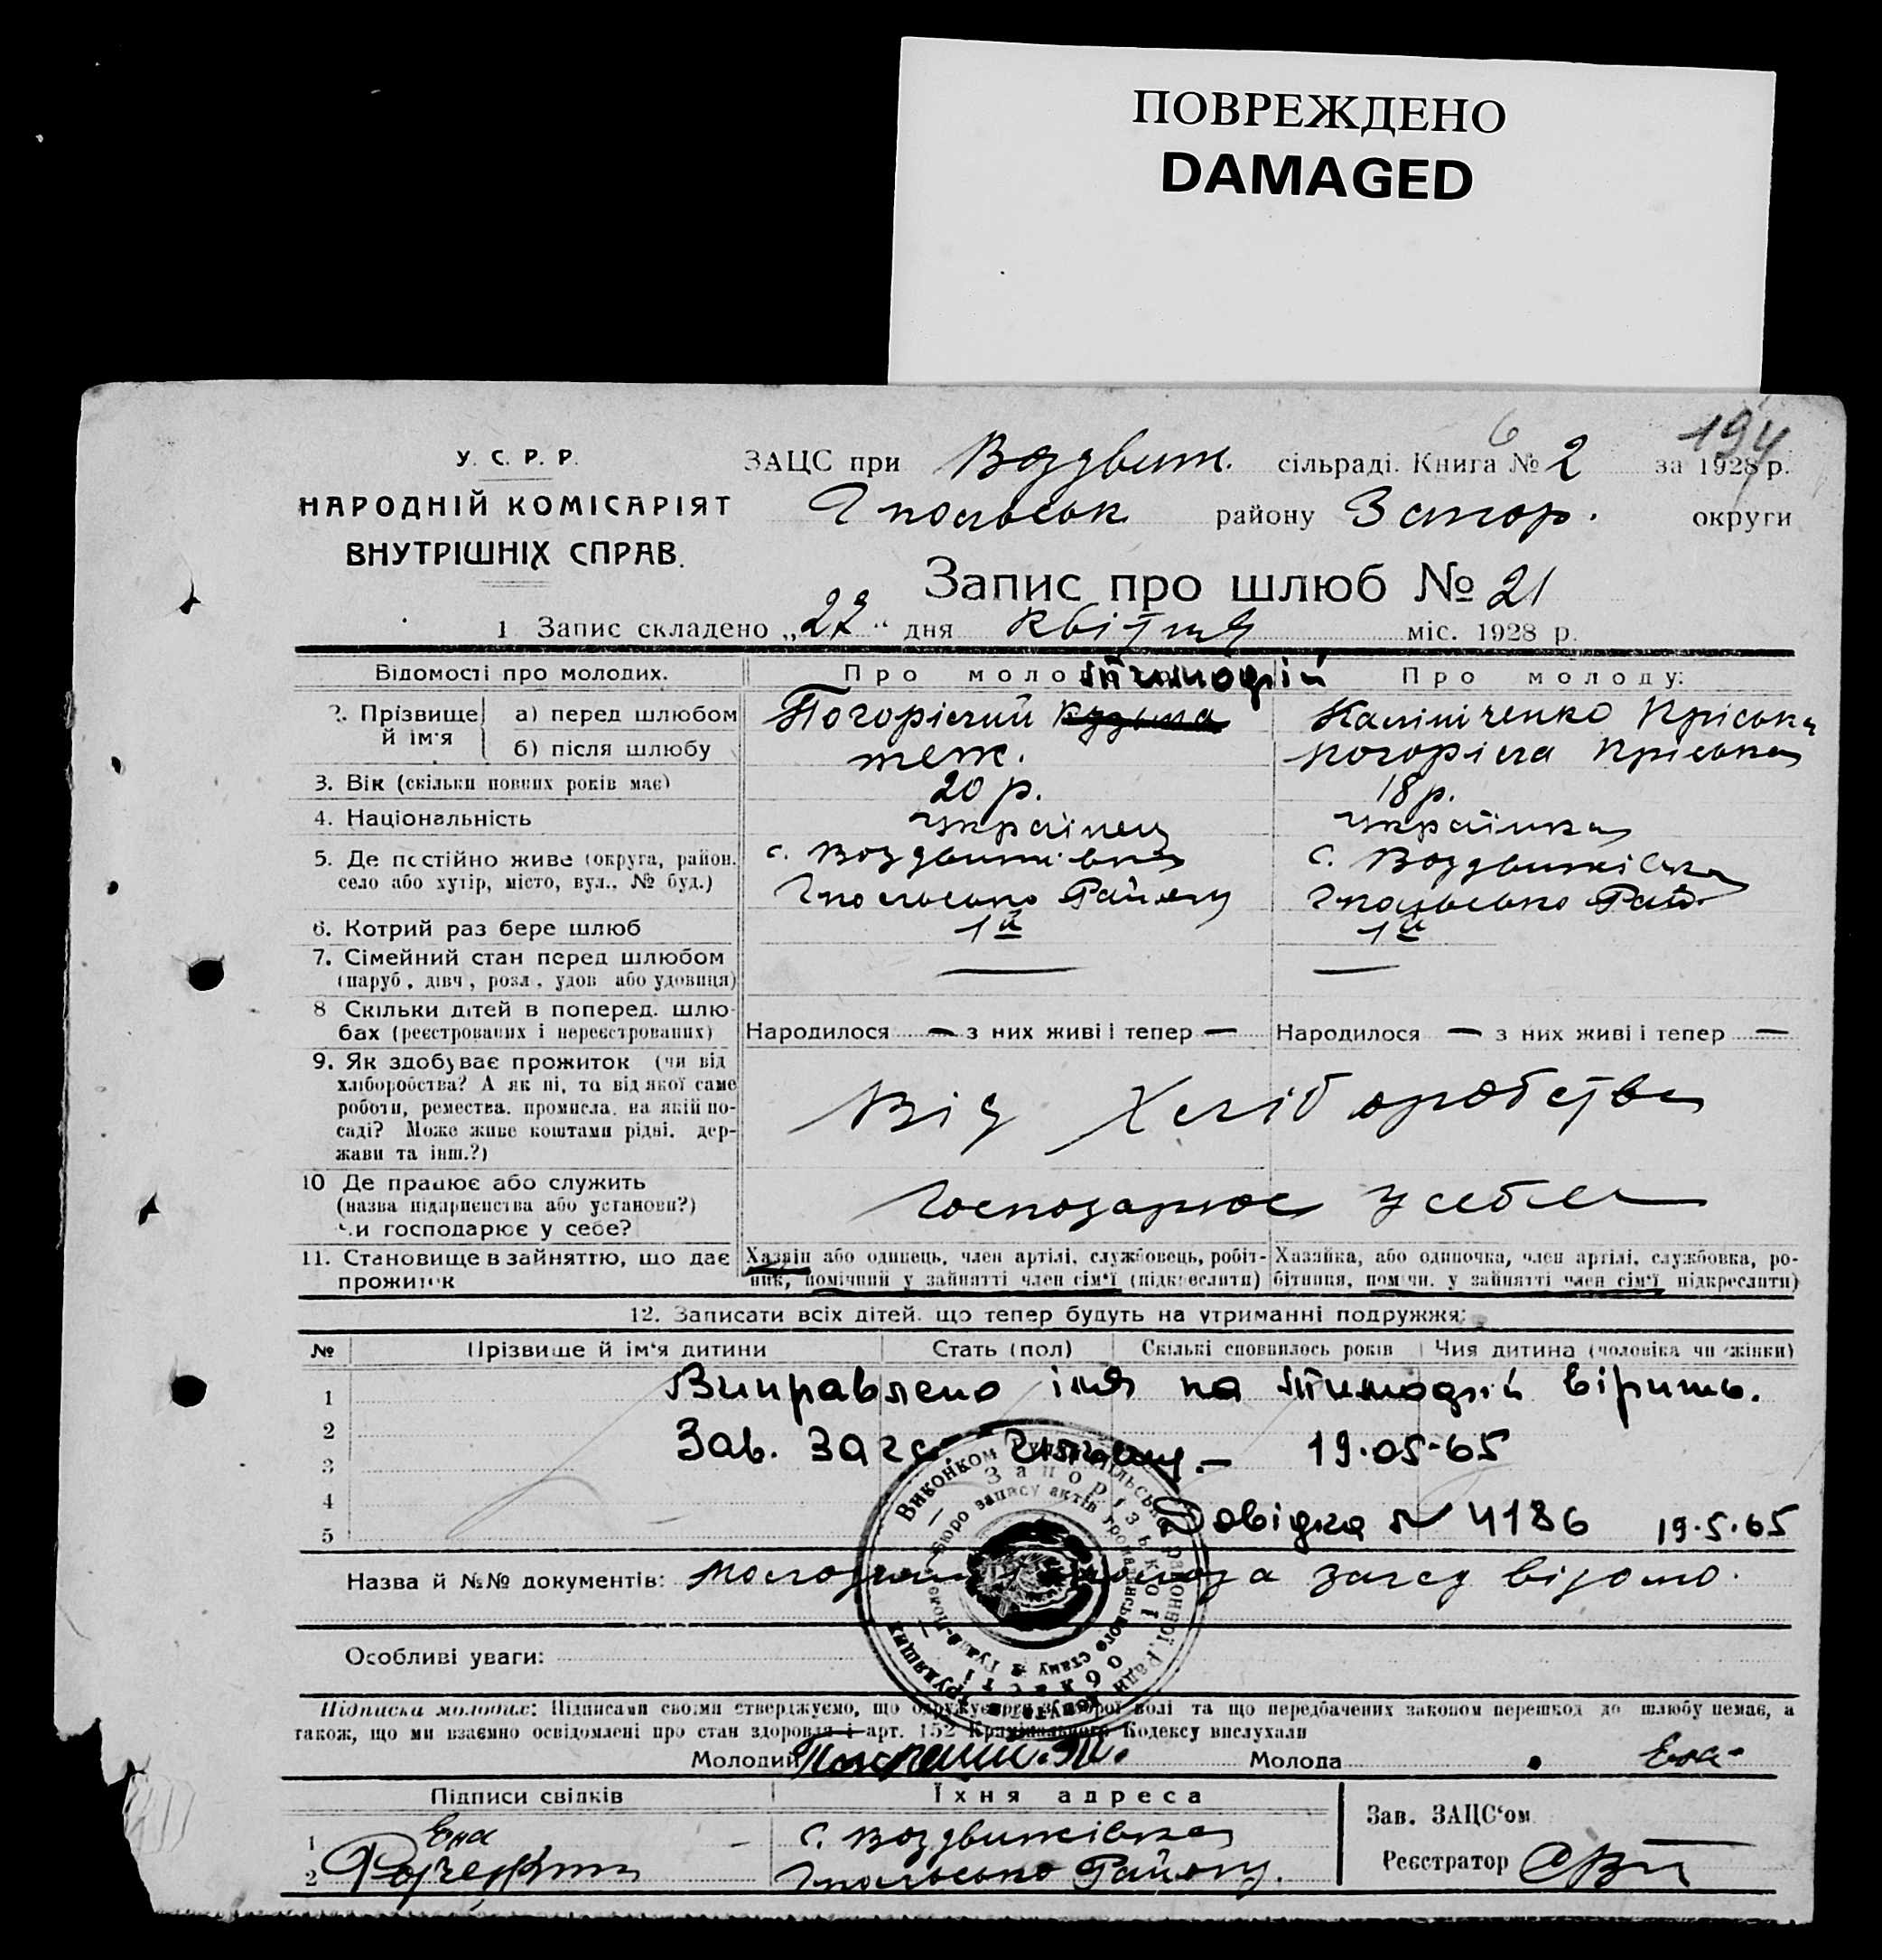 ПОВРЕЖДЕНО
DAMAGED
194
6
У. С. Р. Р.
НАРОДНІЙ КОМІСАРІЯТ
ВНУТРІШНІХ СПРАВ.
ЗАЦС при Воздвиж. сільраді. Книга № 2 за 1928 р.
Гпольськ району Запор. округи
Запис про шлюб № 21
1 Запис складено „27“ дня квітня міс. 1928 р.
Відомості про молодих.
Про молодого
Тимофій
Про молоду:
2. Прізвище й ім'я
а) перед шлюбом Погорілий Кузьма Калініченко Пріська
б) після шлюбу теж. Погоріла Пріська
3. Вік (скільки повних років має) 20 р. 18 р.
4. Національність Українец Українка
5. Де постійно живе (округа, район, с. Воздвижівка с. Воздвижівка
село або хутір, місто, вул., № буд.) Гпольсько Району Гпольсько Рай
6. Котрий раз бере шлюб 1й 1й
7. Сімейний стан перед шлюбом — —
(паруб., дівч., розл., удов. або удовиця)
8 Скільки дітей в поперед. шлю-
бах (реєстрованих і нереєстрованих) Народилося — з них живі і тепер — Народилося — з них живі і тепер —
9. Як здобуває прожиток (чи від
хліборобства? А як ні, то від якої саме
роботи, ремества, промисла, на якій по-
саді? Може живе коштами рідні, дер-
жави та інш.?)
Від Хліборобства
10 Де працює або служить
(назва підприємства або установи?)
Чи господарює у себе?
Господарює у себе
11. Становище в зайняттю, що дає
прожиток
Хазяїн або одинець, член артілі, службовець, робіт-
ник, помічний у зайнятті член сім'ї (підкреслити)
Хазяйка, або одиночка, член артілі, службовка, ро-
бітниця, помічн. у зайнятті член сім'ї підкреслити)
12. Записати всіх дітей, що тепер будуть на утриманні подружжя:
№ Прізвище й ім'я дитини Стать (пол) Скількі сповнилось років Чия дитина (чоловіка чи жінки)
1 Виправлено ім'я на Тимофій вірить.
2 Зав. Загс 19.05.65
3
4 Довідка № 4186 19.5.65
5
Виконком Гуляйпільської районної Ради депутатів трудящих
Запорізької області
Бюро запису актів громадянського стану
Назва й №№ документів: загсу відомо.
Особливі уваги:
Підписка молодих: Підписами своїми стверджуємо, що одружуємося з доброї волі та що передбачених законом перешкод до шлюбу немає, а
також, що ми взаємно освідомлені про стан здоровля і арт. 152 Кримінального Кодексу вислухали
Молодий Погорілий. Т. Молода
Підписи свідків Їхня адреса Зав. ЗАЦС'ом
1 с. Воздвижівка
2 Гпольсько Району. Реєстратор